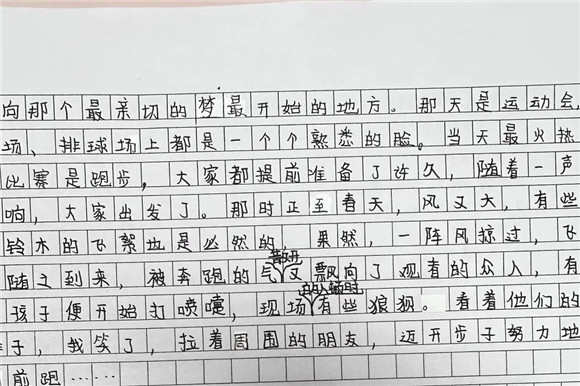 向那个最亲切的梦最开始的地方。那天是运动会,
场、排球场上都是一个个熟悉的脸。当天最火热
比赛是跑步，大家都提前准备了许久，随着一声
响，大家出发了。那时正至春天，风又大，有些
铃木的飞絮也是必然的，果然，一阵风掠过，飞
随之到来，被奔跑的气又飘向了观者的众人，有
的人顿时
孩子便开始打喷嚏，现场有些狼狈。看着他们的
子，我笑了，拉着周围的朋友，迈开步子努力地
前跑……